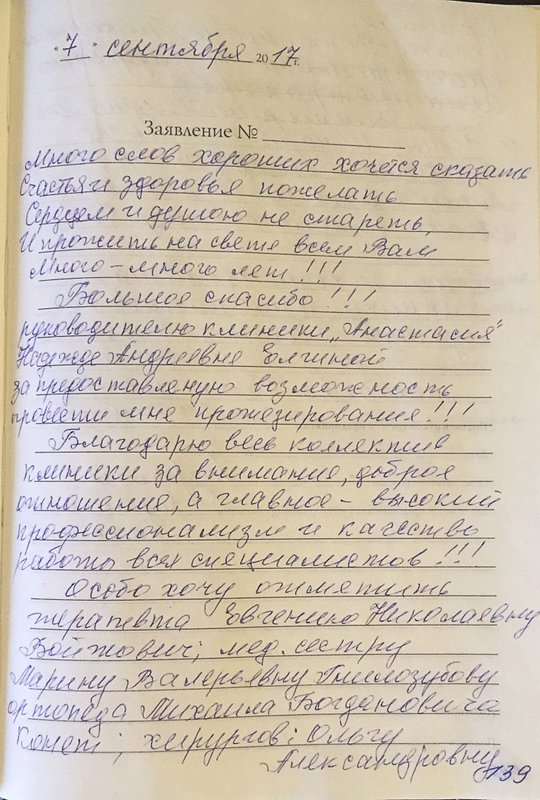 "7" сентября 2017г.
Заявление №
Много слов хороших хочется сказать
Счастья и здоровья пожелать
Сердцем и душою не стареть,
И прожить на свете всем Вам
Много-много лет!!!
Большое спасибо!!!
руководителю клиники „Анастасия"
Надежде Андреевне Елгиной
за предоставленую возможность
провести мне протезирования!!!
Благодарю весь коллектив
клиники за внимание, доброе
отношение, а главное - высокий
профессионализм и качество
работы всех специалистов!!!
Особо хочу отметить
терапевта Евгению Николаевну
Войтович; мед. сестру
Марину Валерьевну Гнилозубову
ортопеда Михаила Богдановича
; хирургов: Ольгу
Александровну
139